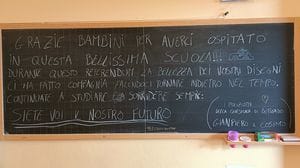 GRAZIE BAMBINI PER AVERCI OSPITATO
IN QUESTA BELLISSIMA SCUOLA!!!
DURANTE QUESTO REFERENDUM LA BELLEZZA DEI VOSTRI DISEGNI
CI HA FATTO COMPAGNIA FACENDOCI TORNARE INDIETRO NEL TEMPO.
CONTINUATE A STUDIARE E A SORRIDERE SEMPRE:
SIETE VOI IL NOSTRO FUTURO
DELLA
GIANPIERO E COSIMO